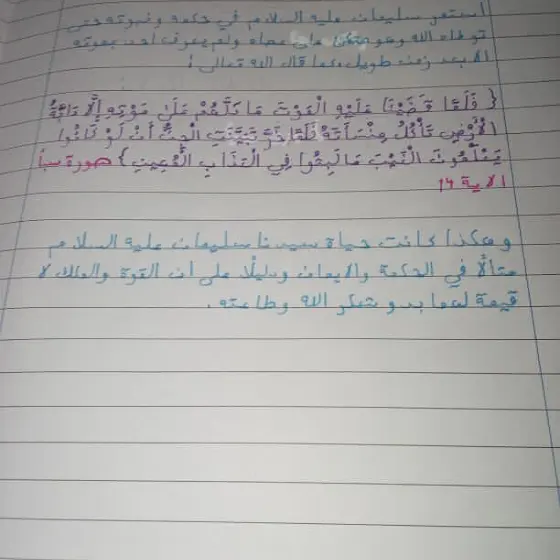 استمر سليمان عليه السلام في حكمه ونبوته حتى
توفاه الله وهو متكئ على عصاه ولم يعرف أحد بموته
الا بعد زمن طويل، كما قال الله تعالى:
{ فَلَمَّا قَضَيْنَا عَلَيْهِ الْمَوْتَ مَا دَلَّهُمْ عَلَىٰ مَوْتِهِ إِلَّا دَابَّةُ
الْأَرْضِ تَأْكُلُ مِنْسَأَتَهُ فَلَمَّا خَرَّ تَبَيَّنَتِ الْجِنُّ أَنْ لَوْ كَانُوا
يَعْلَمُونَ الْغَيْبَ مَا لَبِثُوا فِي الْعَذَابِ الْمُهِينِ } سورة سبأ
الاية 14
وهكذا كانت حياة سيدنا سليمان عليه السلام
مثالًا في الحكمة والايمان ودليلًا على أن القوة والملك لا
قيمة لهما بدو شكر الله وطاعته.